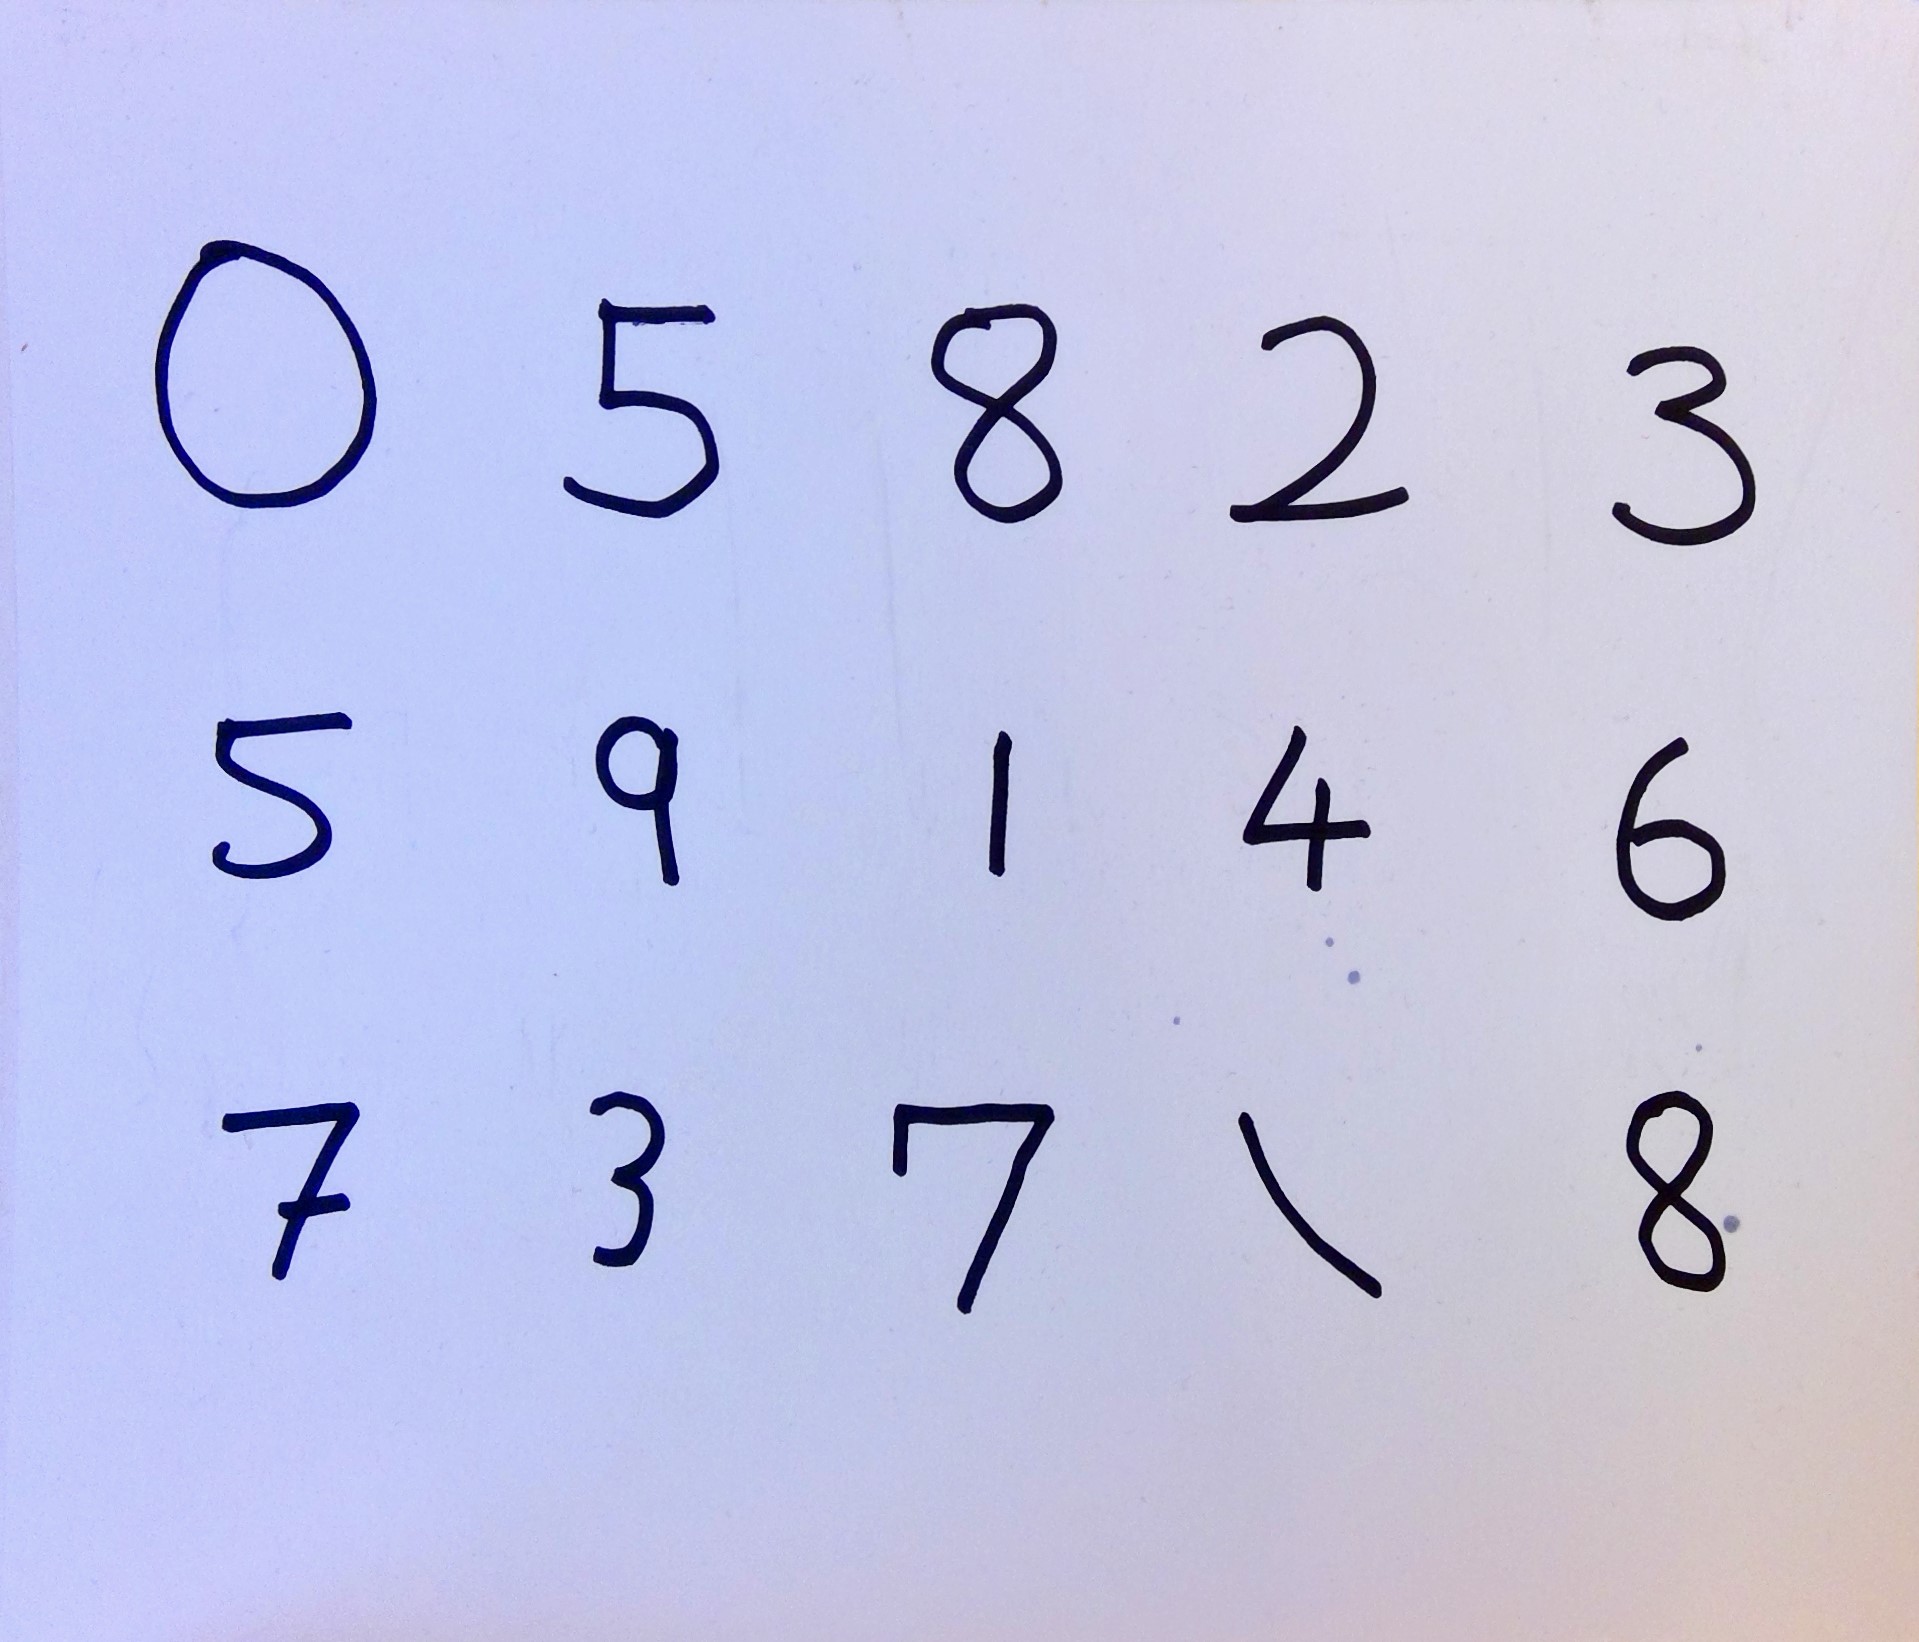 0 5 8 2 3
5 9 1 4 6
7 3 7 \ 8